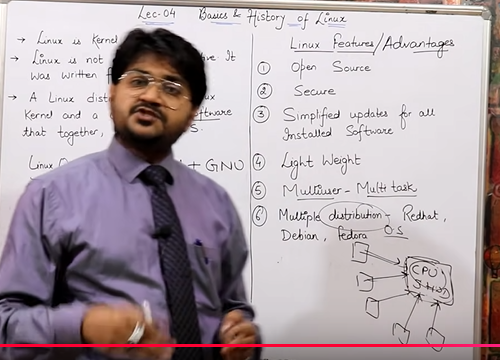 Lec-04 Basics & History of Linux
→ Linux is kern
→ Linux is not
ve It
was written f
→ A Linux dist
ux
Kernel and a
software
that together,
S.
Linux O
+ GNU
Linux Features/Advantages
① Open Source
② Secure
③ Simplified updates for all
Installed Software
④ Light Weight
⑤ Multiuser - Multi task
⑥ Multiple distribution - Redhat,
Debian, fedora OS
CPU